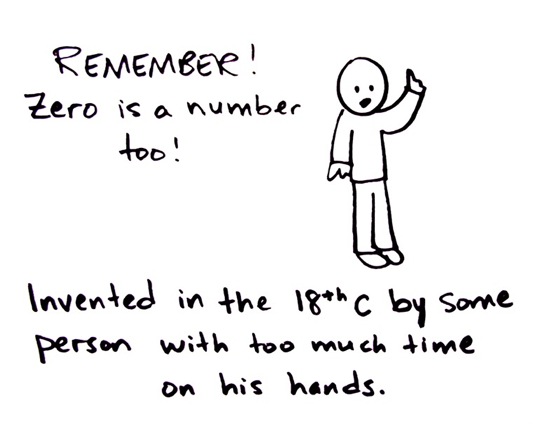 REMEMBER!
Zero is a number
too!
Invented in the 18th C by some
person with too much time
on his hands.